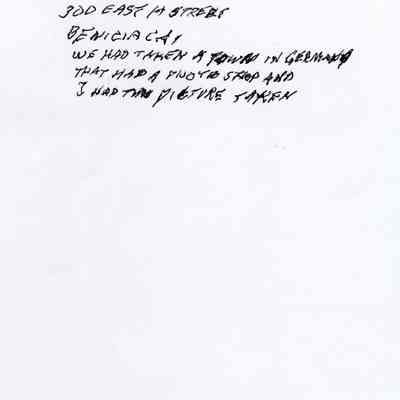 300 EAST H STREET
BENICIA CA,
WE HAD TAKEN A TOWN IN GERMANY
THAT HAD A PHOTO SHOP AND
I HAD THIS PICTURE TAKEN